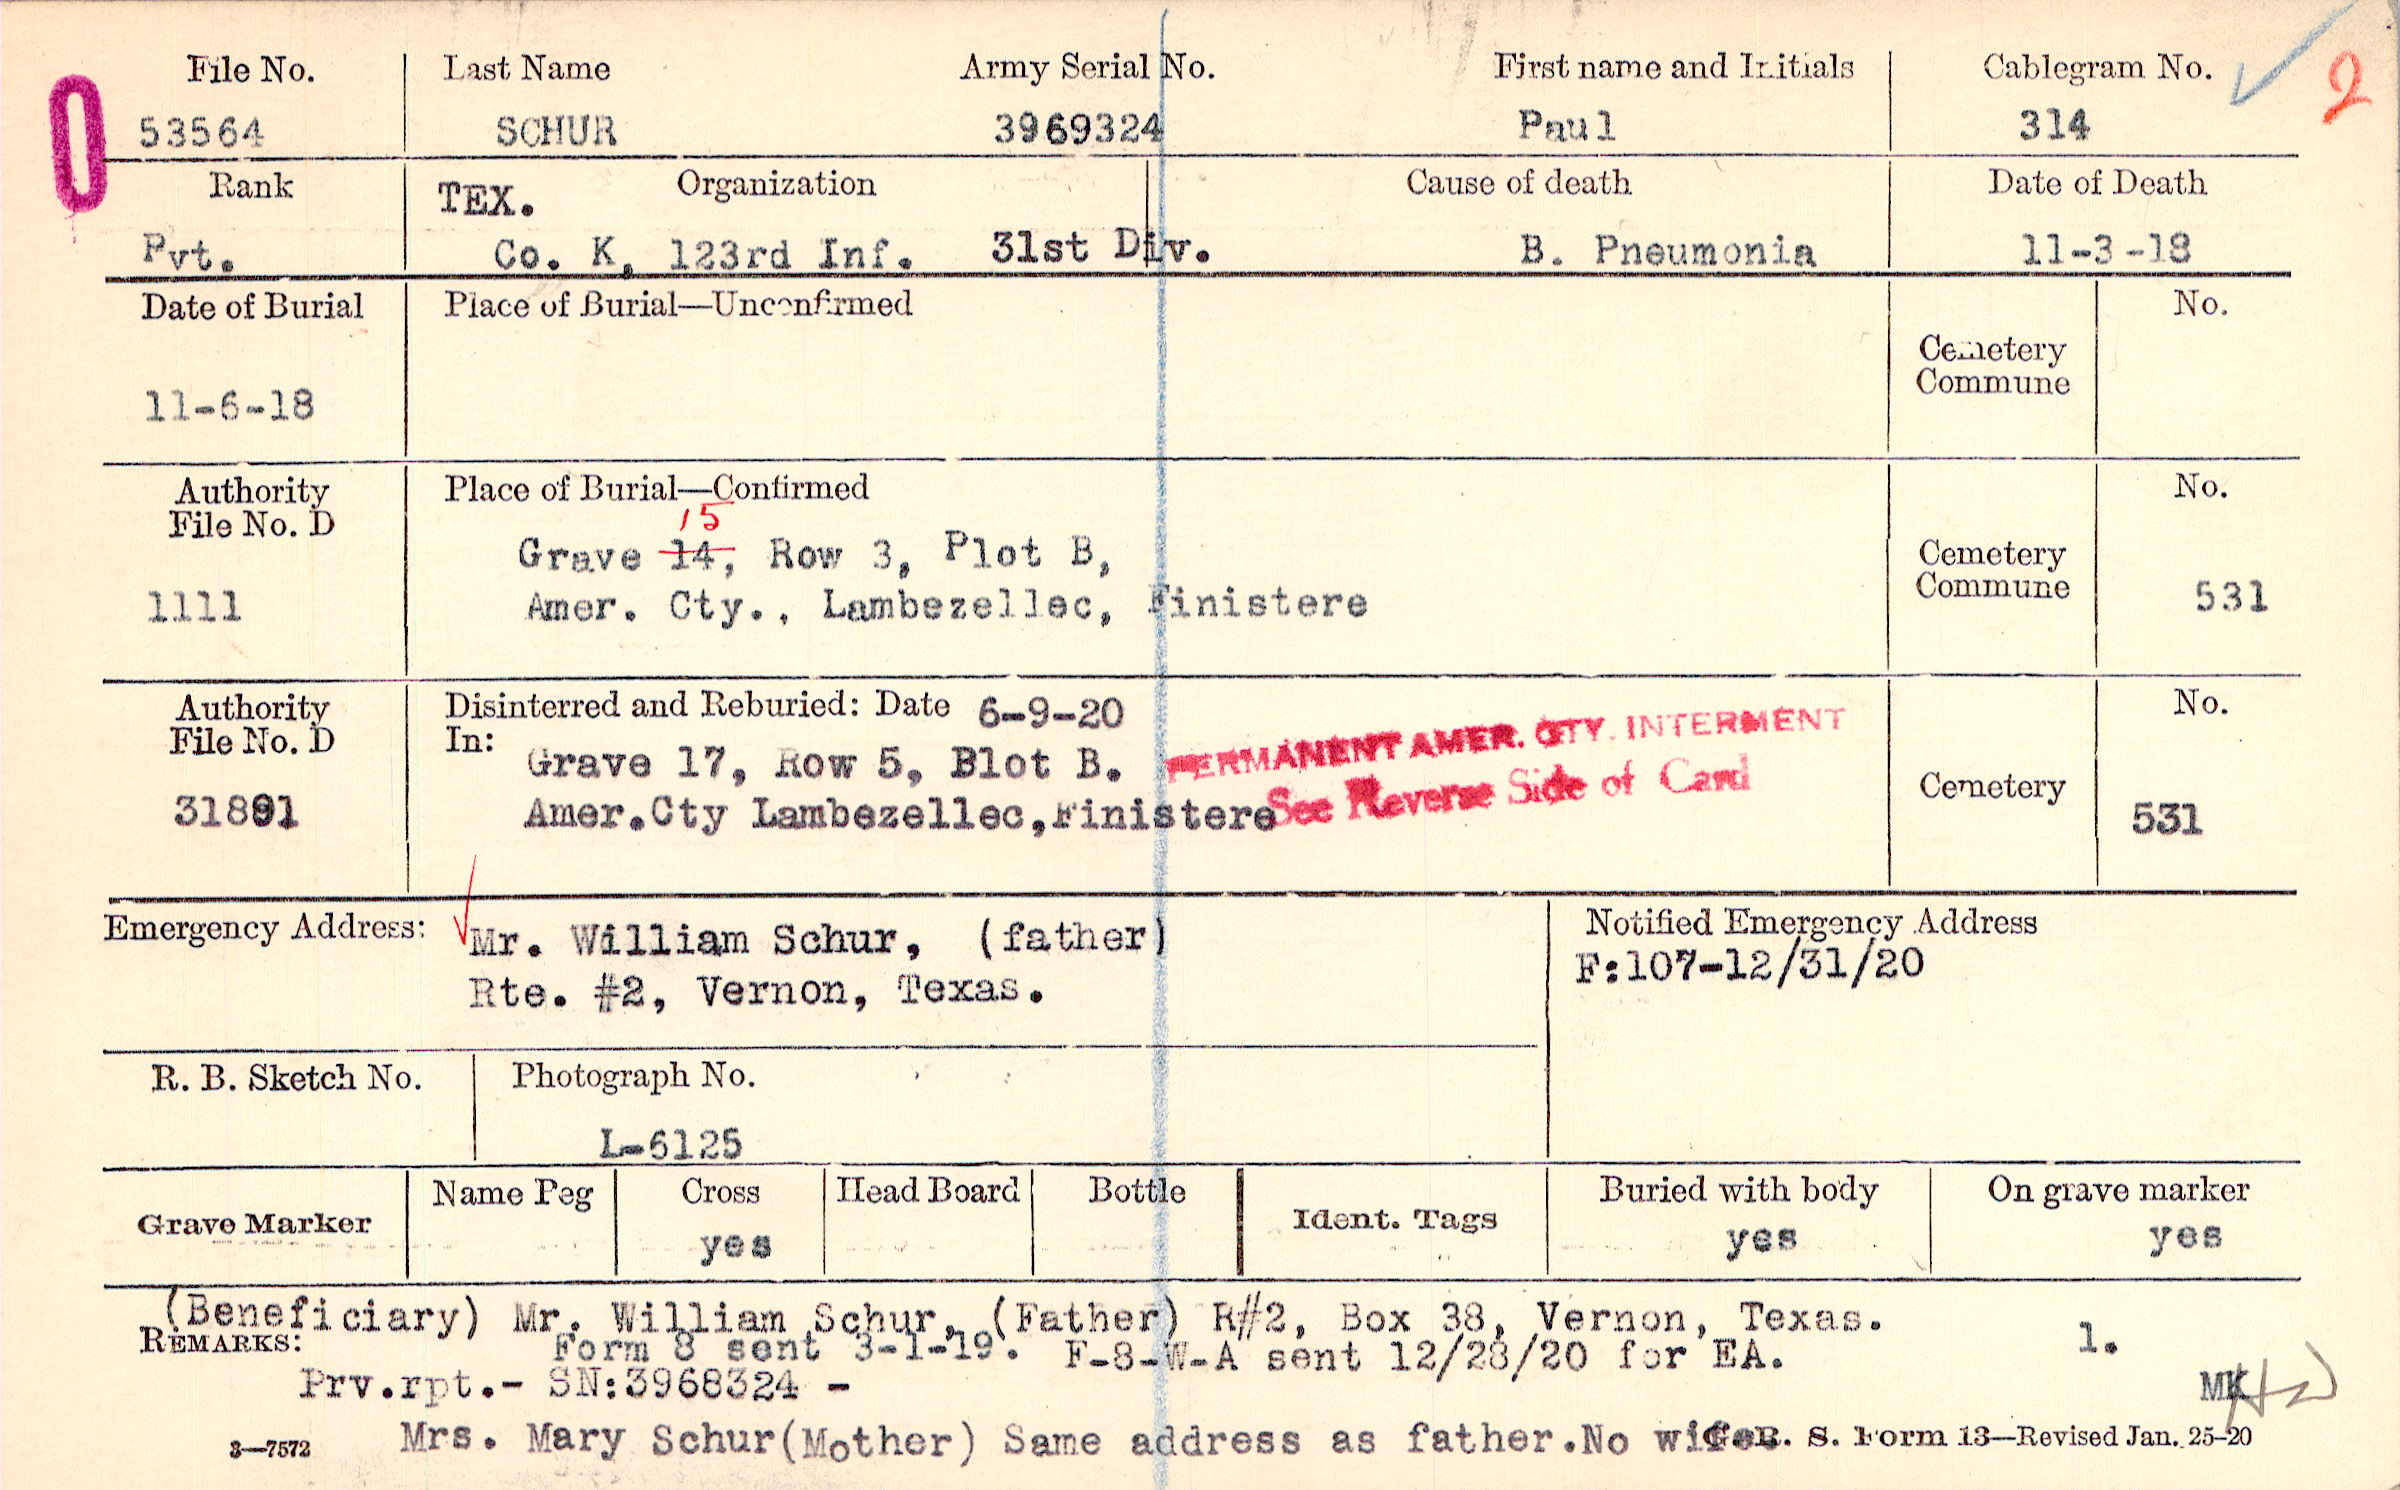 File No. Last Name Army Serial No. First name and Initials Cablegram No. 2
53564 SCHUR 3969324 Paul 314
Rank TEX. Organization Cause of death Date of Death
Pvt. Co. K, 123rd Inf. 31st Div. B. Pneumonia 11-3-18
Date of Burial Place of Burial—Unconfirmed No.
Cemetery
Commune
11-6-18
Authority Place of Burial—Confirmed No.
File No. D 15
Grave 14, Row 3, Plot B, Cemetery
1111 Amer. Cty., Lambezellec, Finistere Commune 531
Authority Disinterred and Reburied: Date 6-9-20 No.
File No. D In: PERMANENT AMER. CTY. INTERMENT
Grave 17, Row 5, Blot B. See Reverse Side of Card Cemetery
31891 Amer.Cty Lambezellec,Finistere 531
Emergency Address: Mr. William Schur, (father) Notified Emergency Address
Rte. #2, Vernon, Texas. F:107-12/31/20
R. B. Sketch No. Photograph No.
L-6125
Grave Marker Name Peg Cross Head Board Bottle Ident. Tags Buried with body On grave marker
yes yes yes
(Beneficiary) Mr. William Schur, (Father) R#2, Box 38, Vernon, Texas.
REMARKS: Form 8 sent 3-1-19. F-8-W-A sent 12/28/20 for EA. 1.
Prv.rpt.- SN:3968324 - MK
3—7572 Mrs. Mary Schur(Mother) Same address as father.No wife. G. R. S. Form 13—Revised Jan. 25-20